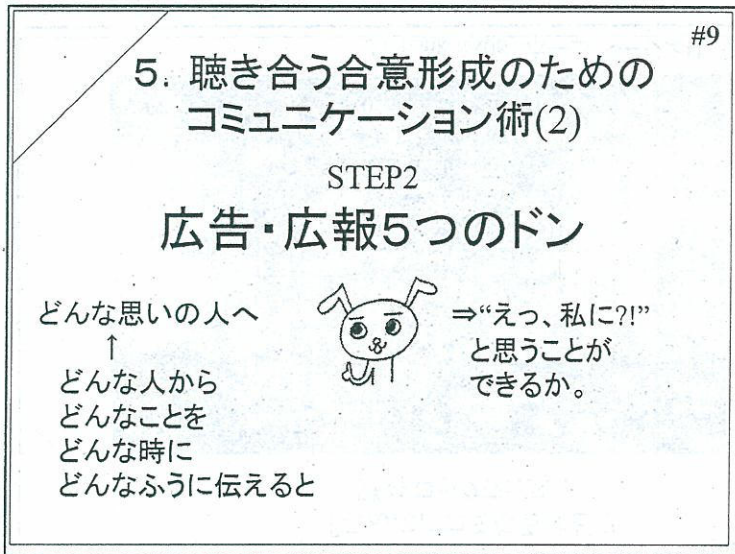 #9
5. 聴き合う合意形成のための
コミュニケーション術(2)
STEP2
広告・広報5つのドン
どんな思いの人へ
↑
どんな人から
どんなことを
どんな時に
どんなふうに伝えると
⇒“えっ、私に?!”
と思うことが
できるか。